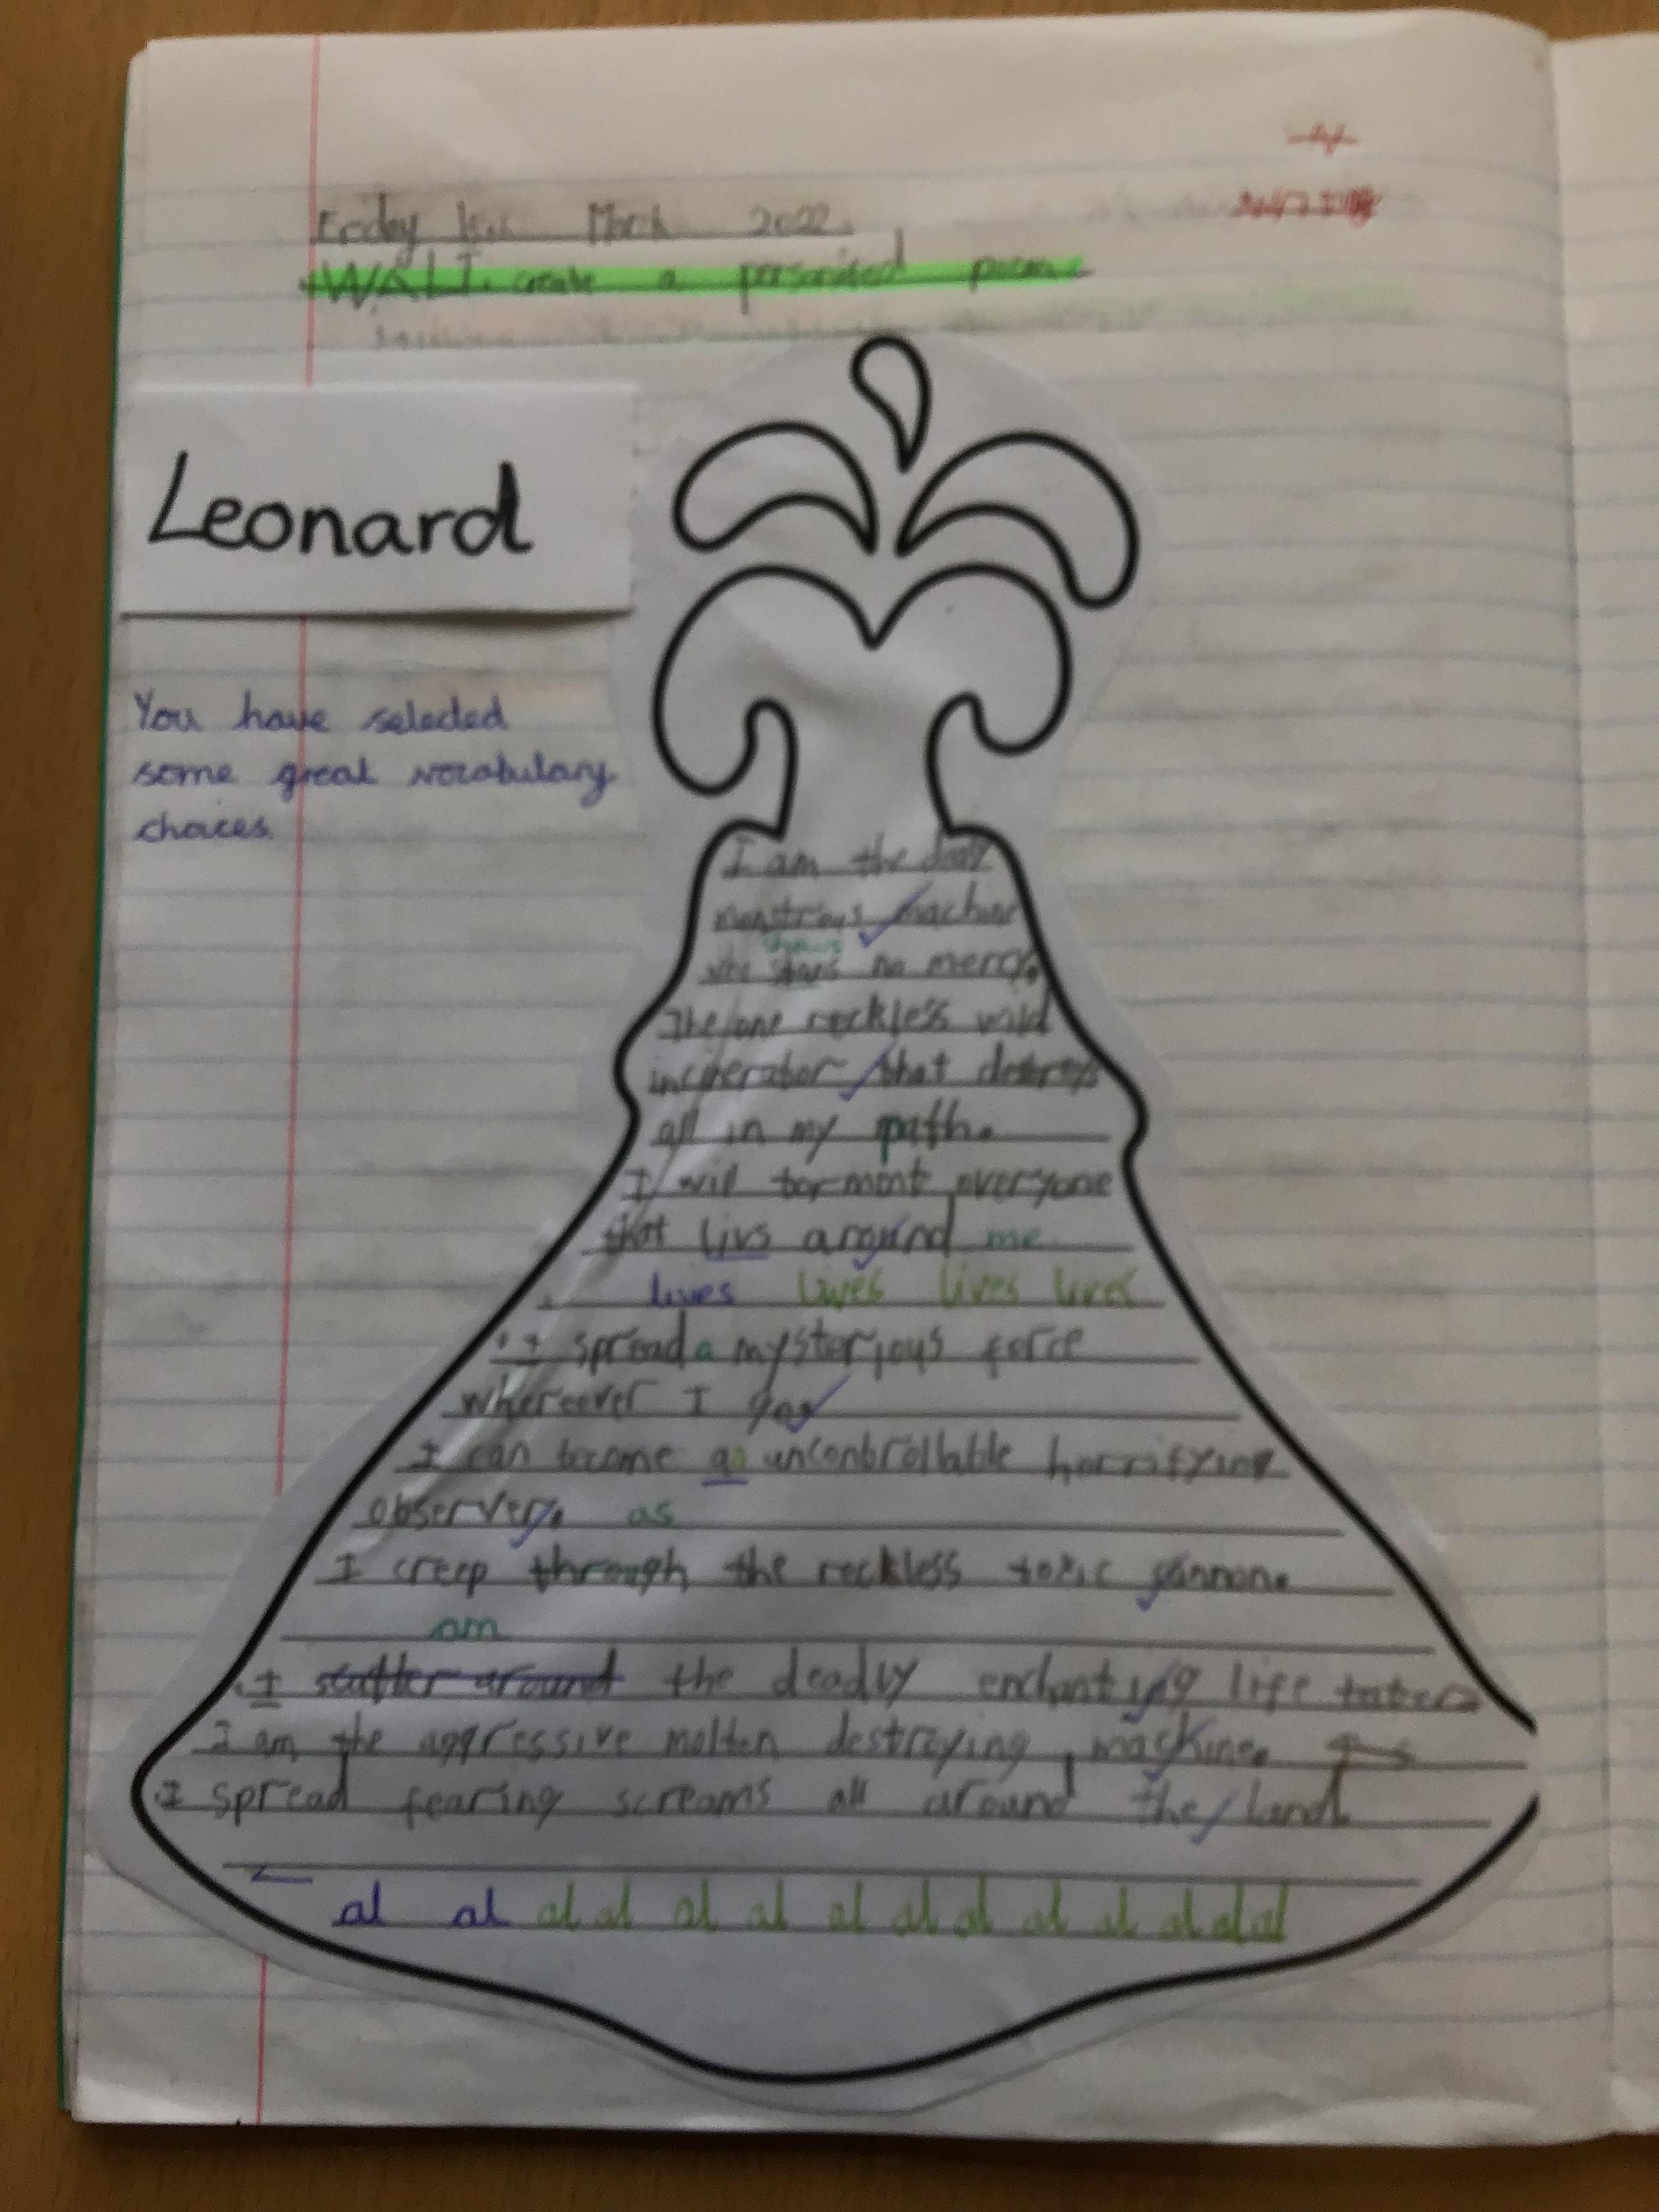 Friday March 2022
WALT: create a personified poem
Leonard
You have selected
some great vocabulary
choices.
I am the
monstrous machine
shows
who no mercy.
The one reckless wild
incinerator that destroys
all in my path.
I will torment everyone
that livs around me
lives lives lives lives
I spread a mysterious force
whereever I go
I can become an uncontrollable horrifying
observer. as
I creep through the reckless toxic
am
I scatter around the deadly enchanting life taker
I am the aggressive molten destroying machine.
I spread fearing screams all around the land
al al al al al al al al al al al al al al